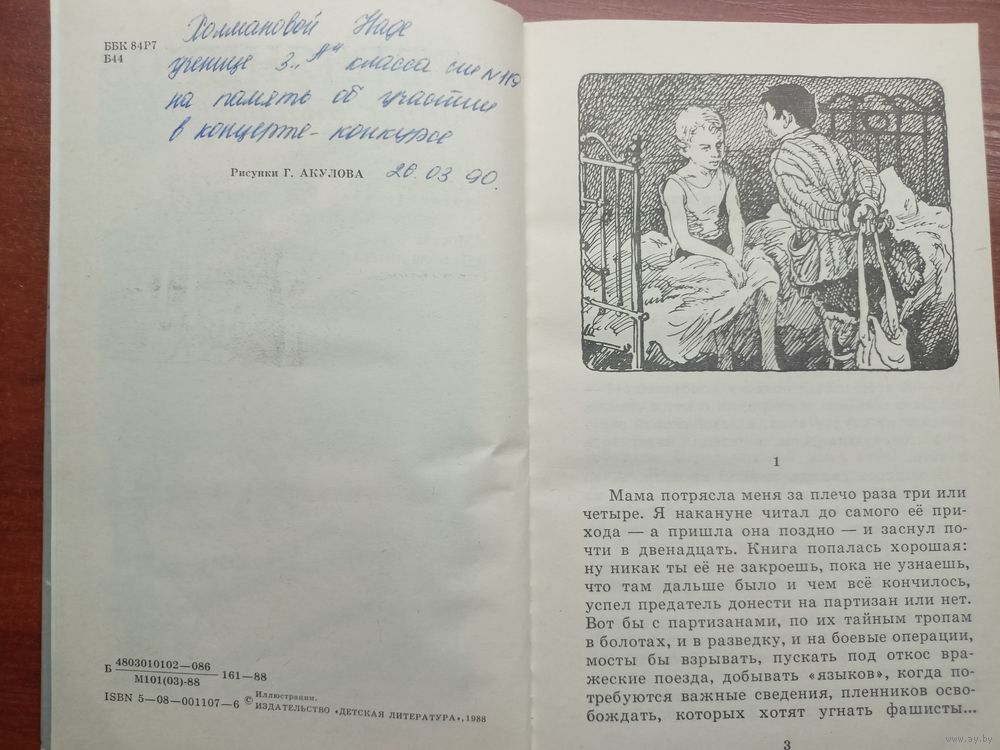 ББК 84Р7
Б44
Холмановой Наде
ученице 3 „А" класса сш №119
на память об участии
в концерте-конкурсе
26.03.90.
Рисунки Г. АКУЛОВА
Б 4803010102—086
М101(03)-88
161—88
ISBN 5—08—001107—6
© Иллюстрации.
ИЗДАТЕЛЬСТВО «ДЕТСКАЯ ЛИТЕРАТУРА», 1988
1
Мама потрясла меня за плечо раза три или
четыре. Я накануне читал до самого её при-
хода — а пришла она поздно — и заснул по-
чти в двенадцать. Книга попалась хорошая:
ну никак ты её не закроешь, пока не узнаешь,
что там дальше было и чем всё кончилось,
успел предатель донести на партизан или нет.
Вот бы с партизанами, по их тайным тропам
в болотах, и в разведку, и на боевые операции,
мосты бы взрывать, пускать под откос вра-
жеские поезда, добывать «языков», когда по-
требуются важные сведения, пленников осво-
бождать, которых хотят угнать фашисты...
3
www.ay.by